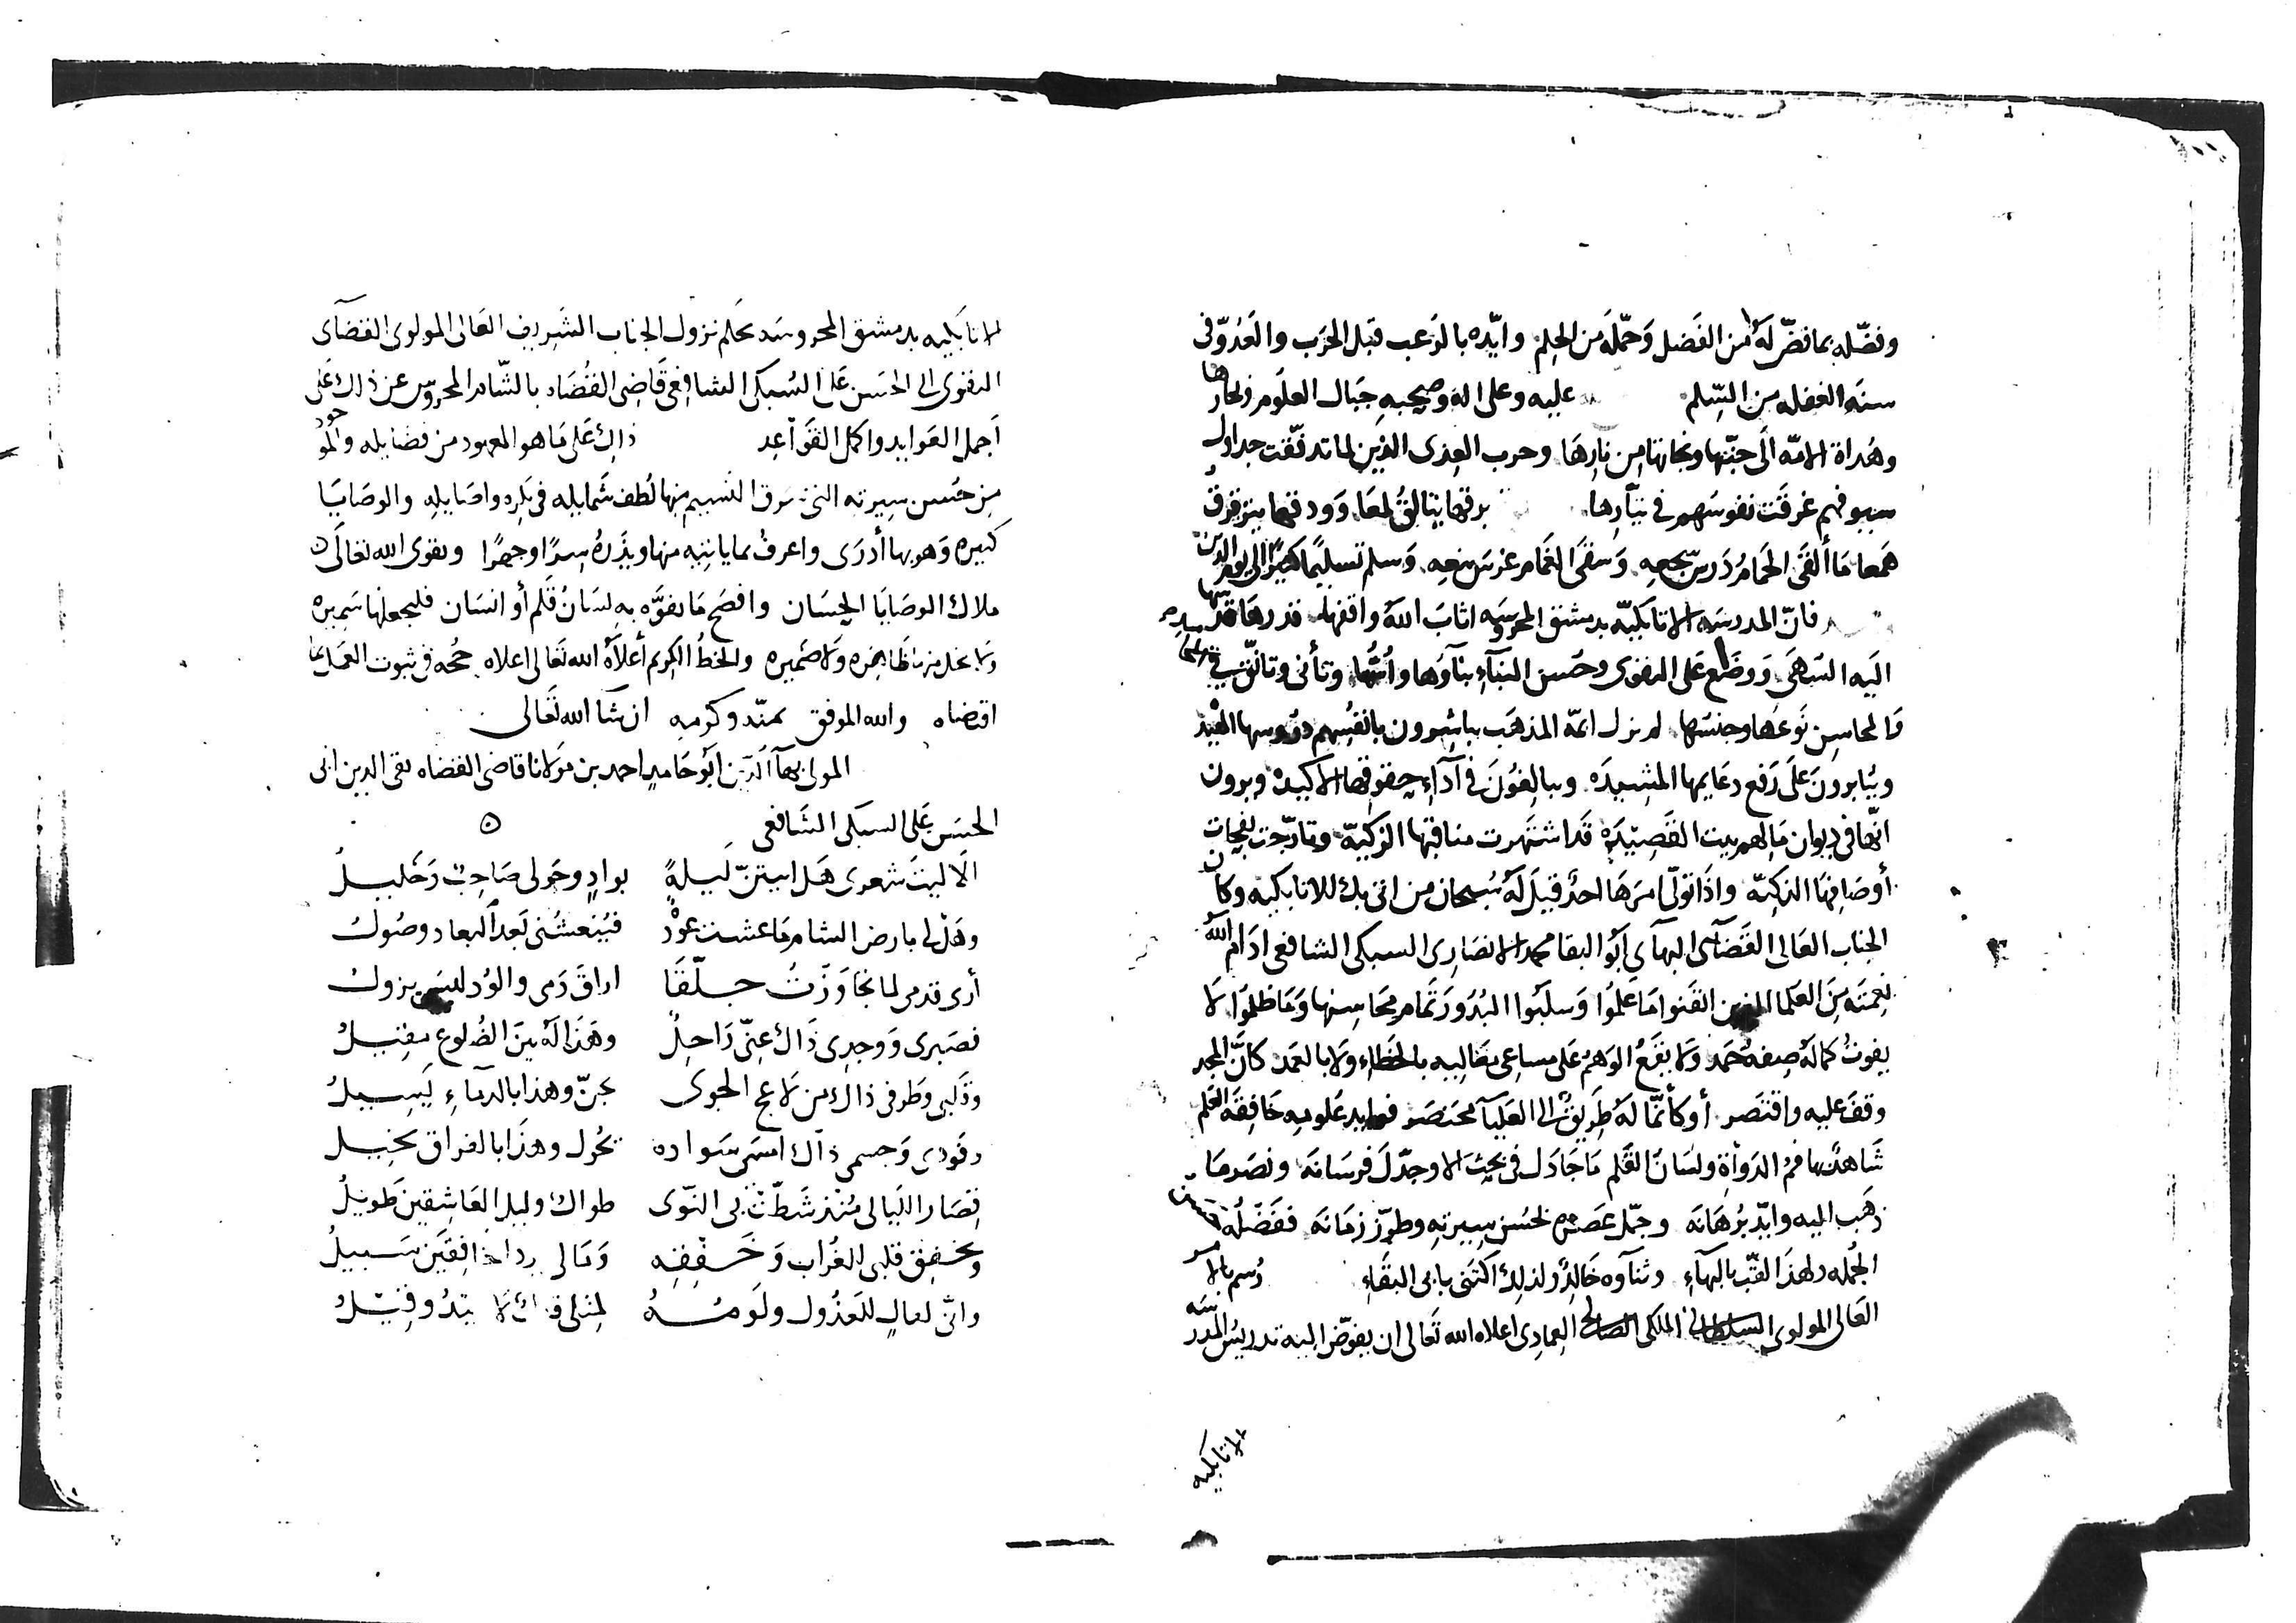 وفضّله بما فضّ له من الفضل وحمّله من الحلم وايّده بالرعب قبل الحرب والعدوّ فى
سنة الغفله من السّلم عليه وعلى اله وصحبه جبال العلوم وبحارها
وهداة الامّه الى جنّتها ونجاتها من نارها وحرب العدى الذين لما تدفّقت جداول
سيوفهم غرقت نفوسهم فى تيّارها برقها يتالق لمعا وودقها يترقرق
همعا ما ألقى الحمام درس سجعه وسقى الغمام غرس ينعه وسلم تسليما كثيرا الى يوم الدين
فانّ المدرسه الاتابكيّه بدمشق المحروسه اثاب الله واقفها قدرها قد
اليه السهى ووضع على التقوى وحسن البناء بناؤها وأسّها وتأنى وتانّق فى
والمحاسن نوعها وجنسها لم نزل ائمّة المذهب يباشرون بانفسهم دروسها المفيده
ويثابرون على رفع دعايمها المشيده ويبالغون فى آداء حقوقها الاكيده ويرون
انّها فى ديوان مالهم بيت القصيده قد اشتهرت مناقبها الزكيّة وتارّجت نفحات
أوصافها الذكيّه واذا تولّى امرها احد قيل له سبحان من اتى بك للاتابكيه وكان
الجناب العالى القضائى البهآى ابو البقا محمد الانصارى السبكى الشافعى ادام الله
نعمته من العلما الذين اتقنوا ما علموا وسلبوا البدور تمام محاسنها وما ظلموا لا
يفوت كماله صفة حمد ولا يقع الوهم على مساعى معاليه بالخطاء ولا بالعمد كانّ المجد
وقف عليه واقتصر أو كأنّما له طريق الى العليآ مختصر فوايد علومه خافقة العلم
شاهد بها فم الدواة ولسان القلم ما جادل فى بحث الا وجدّل فرسانه ونصر ما
ذهب اليه وايّد برهانه وجمّل عصره بحسن سيرته وطرّز زمانه ففضله
الجمله ولهذا لقّب بالبهآء وثنآوه خالد ولذلك اكتنى بابى البقاء رسم بالامر
العالى المولوى السلطانى الملكى الصالحى العمادى اعلاه الله تعالى ان يفوّض اليه تدريس المدرسه
الاتابكيه
الاتابكيه بدمشق المحروسه بحكم نزول الجناب الشريف العالى المولوى القضآى
التقوى ابى الحسن على السبكى الشافعى قاضى القضاه بالشام المحروس عن ذلك على
أجمل العوايد واكمل القواعد ذلك على ما هو المعهود من فضايله والموجود
من حسن سيرته التى سرق النسيم منها لطف شمايله فى بكره واصايله والوصايا
كثيره وهو بها أدرى واعرف بما ياتيه منها ويذره سرّا وجهرا وتقوى الله تعالى
ملاك الوصايا الحسان وافصح ما تفوّه به لسان قلم أو انسان فليجعلها سميره
ولا يخل منها ظاهره ولا ضميره والخط الكريم أعلاه الله تعالى اعلاه حجّه فى ثبوت العمل بما
اقتضاه والله الموفق بمنّه وكرمه ان شآ الله تعالى
المولى بهآ الدين ابو حامد احمد بن مولانا قاضى القضاه تقى الدين ابى
الحسن على السبكى الشافعى ه
الا ليت شعرى هل ابيتنّ ليلةً بوادٍ وحولى صاحب وخليل
وهل لى بارض الشام ما عشت عودة فينعشنى بعد البعاد وصول
أرى قدمى لما تجاوزت جلّقا اراق دمى والود ليس يزول
فصبرى ووجدى ذاك عنّى راحل وهذا له بين الضلوع مقيل
وقلبى وطرفى ذاك من لاعج الجوى يجنّ وهذا بالدماء يسيل
وفودى وجسمى ذاك امسى سواده يحول وهذا بالفراق نحيل
قصار الليالى منذ شطّت بى النوى طوال وليل العاشقين طويل
ويخفق قلبى للغراب وخفقه ومالى سبيل
وانّى لعالٍ للعذول ولومه